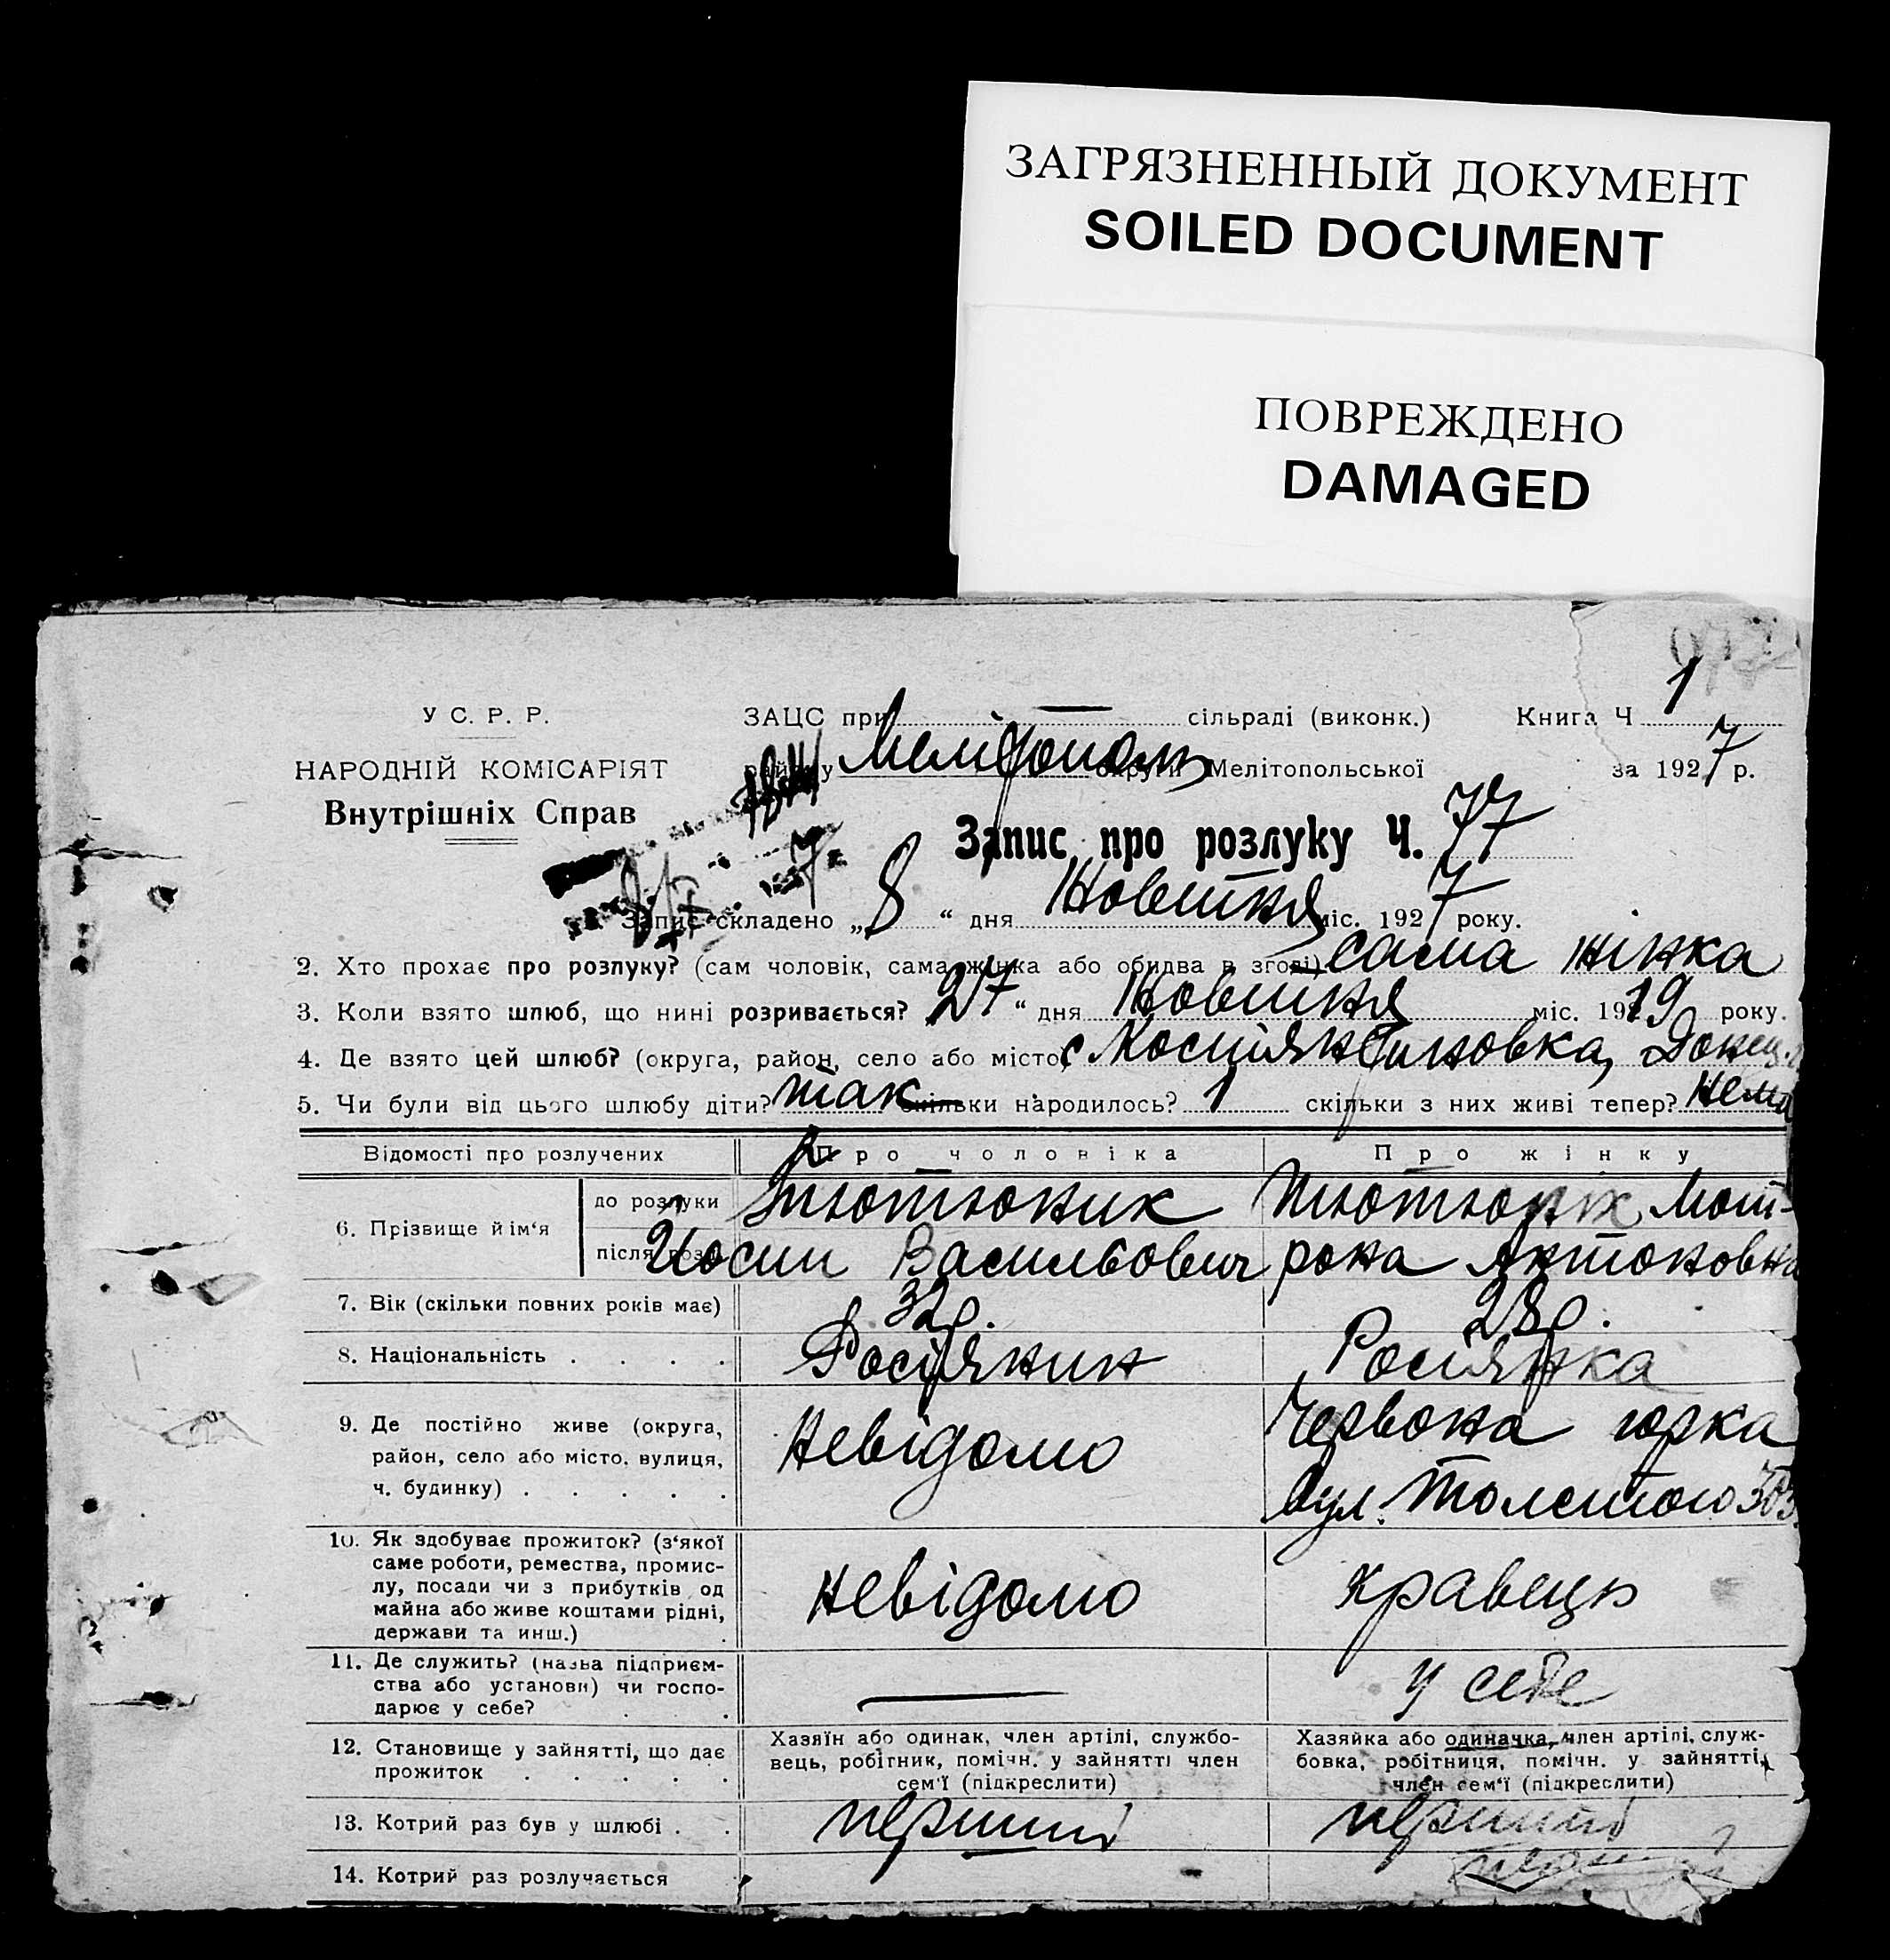 ЗАГРЯЗНЕННЫЙ ДОКУМЕНТ
SOILED DOCUMENT
ПОВРЕЖДЕНО
DAMAGED
У С. Р. Р.
ЗАЦС при — сільраді (виконк.)
Книга Ч 1
НАРОДНІЙ КОМІСАРІЯТ
району Мелітополь округи Мелітопольської
за 1927 р.
Внутрішніх Справ
Запис про розлуку Ч. 77
Запис складено „8“ дня Жовтня міс. 1927 року.
2. Хто прохає про розлуку? (сам чоловік, сама жінка або обидва в згоді) сама жінка
3. Коли взято шлюб, що нині розривається? 27“ дня Жовтня міс. 1919 року.
4. Де взято цей шлюб? (округа, район, село або місто) с Костянтиновка, Донец.
5. Чи були від цього шлюбу діти? так скільки народилось? 1 скільки з них живі тепер? Нема
Відомості про розлучених
Про чоловіка
Про жінку
6. Прізвище й ім‘я
до розлуки
після розл.
Тютюник
Иосип Васильович
Тютюник Мот-
рона Антоновна
7. Вік (скільки повних років має)
32 р.
28 р.
8. Національність . . . .
Росіянин
Росіянка
9. Де постійно живе (округа,
район, село або місто, вулиця,
ч. будинку) . . . . .
Невідомо
Червона горка
вул. Толстого
10. Як здобуває прожиток? (з‘якої
саме роботи, ремества, промис-
лу, посади чи з прибутків од
майна або живе коштами рідні,
держави та инш.) .
Невідомо
Кравець
11. Де служить? (назва підприєм-
ства або установи) чи госпо-
дарює у себе? . .
—
у себе
12. Становище у зайнятті, що дає
прожиток . . . . .
Хазяїн або одинак, член артілі, службо-
вець, робітник, помічн. у зайнятті член
сем‘ї (підкреслити)
Хазяйка або одиначка, член артілі, служ-
бовка, робітниця, помічн. у зайнятті,
член сем‘ї (підкреслити)
13. Котрий раз був у шлюбі . .
перший
перший
14. Котрий раз розлучається